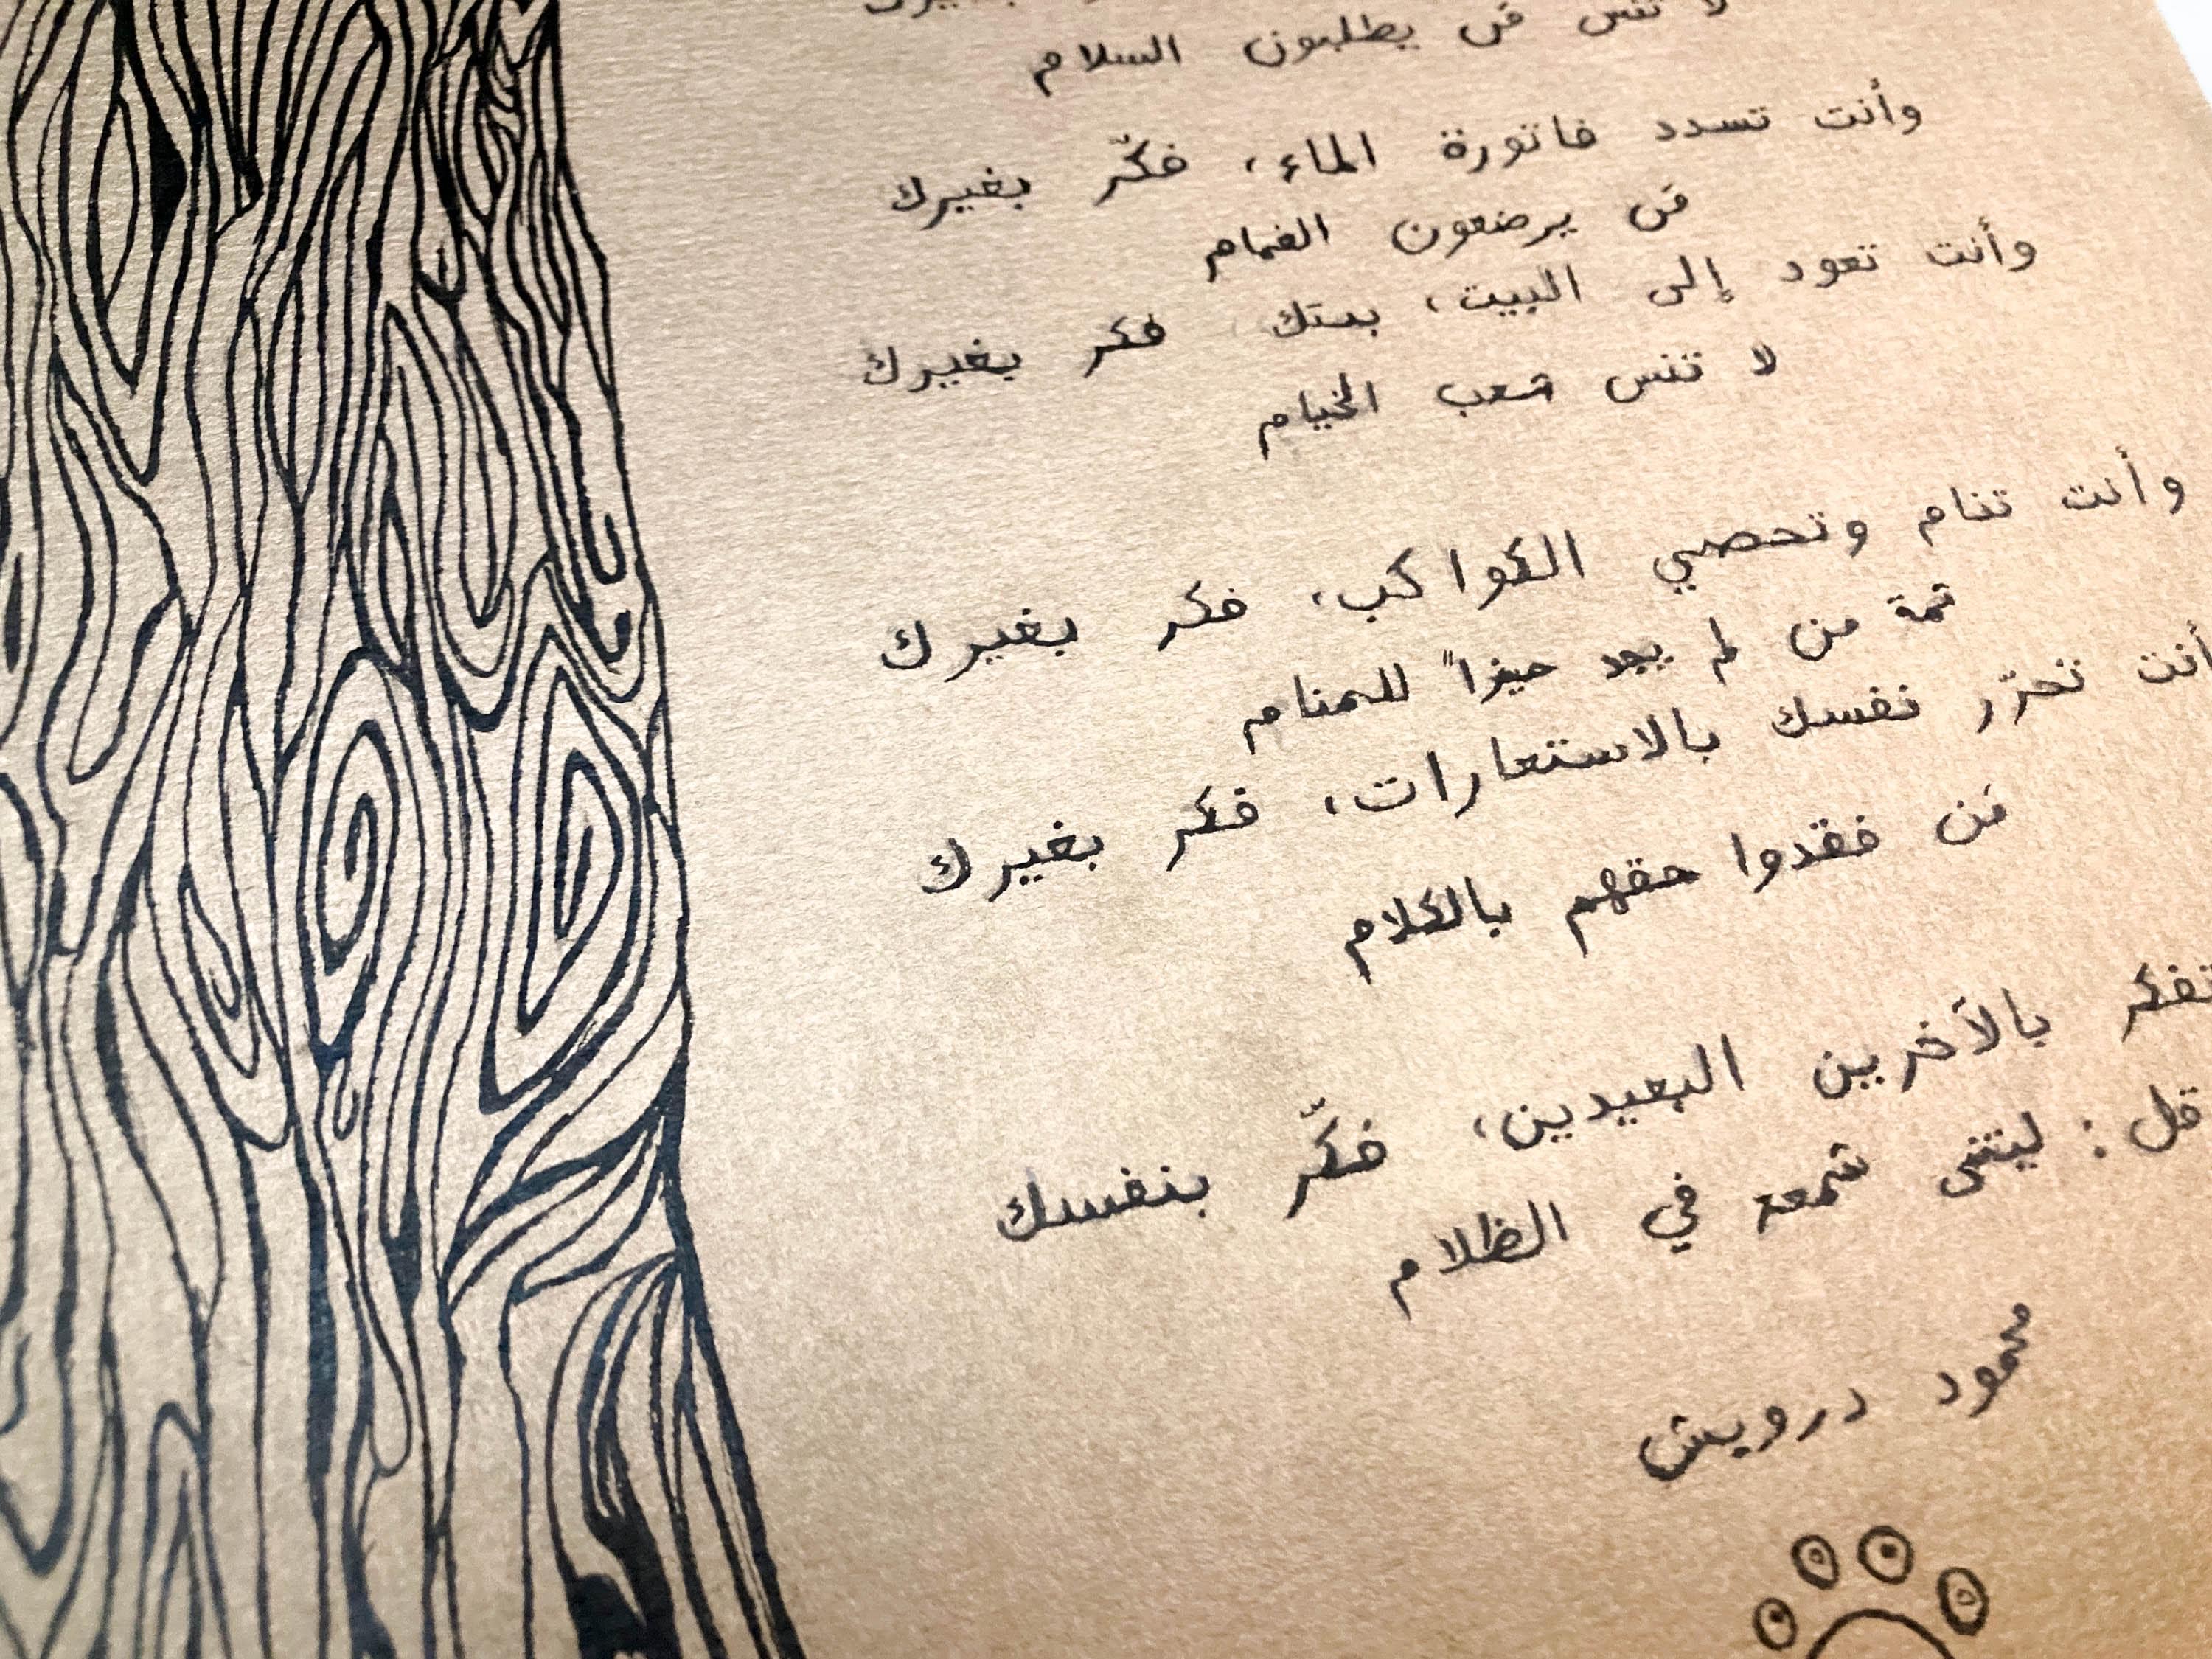 لا تنس مَن يطلبون السلام
وأنت تسدد فاتورة الماء، فكّر بغيرك
مَن يرضعون الغمام
وأنت تعود إلى البيت، بيتك فكر بغيرك
لا تنس شعب الخيام
وأنت تنام وتحصي الكواكب، فكر بغيرك
ثمة من لم يجد حيزاً للمنام
أنت تحرّر نفسك بالاستعارات، فكر بغيرك
مَن فقدوا حقهم بالكلام
تفكر بالآخرين البعيدين، فكّر بنفسك
قل: ليتني شمعة في الظلام
محمود درويش